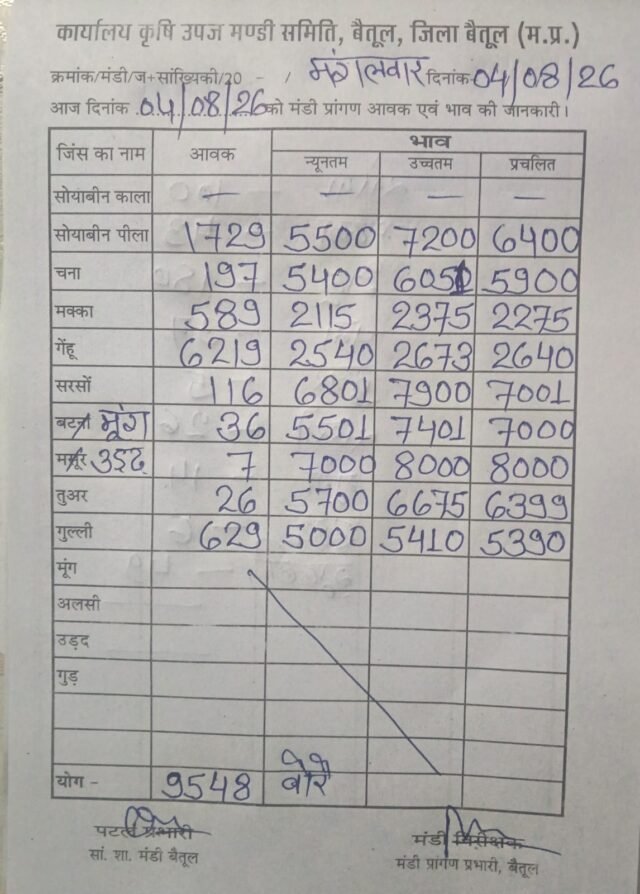 कार्यालय कृषि उपज मण्डी समिति, बैतूल, जिला बैतूल (म.प्र.)
क्रमांक/मंडी/ज+सांख्यिकी/20 - / मंगलवार दिनांक 04/08/26
आज दिनांक 04/08/26 को मंडी प्रांगण आवक एवं भाव की जानकारी।
जिंस का नाम आवक भाव
न्यूनतम उच्चतम प्रचलित
सोयाबीन काला — — — —
सोयाबीन पीला 1729 5500 7200 6400
चना 197 5400 6051 5900
मक्का 589 2115 2375 2275
गेंहू 6219 2540 2673 2640
सरसों 116 6801 7900 7001
बटरी मूंग 36 5501 7401 7000
मसूर उड़द 7 7000 8000 8000
तुअर 26 5700 6675 6399
गुल्ली 629 5000 5410 5390
मूंग
अलसी
उड़द
गुड़
योग - 9548 बोरे
पटल प्रभारी मंडी निरीक्षक
सां. शा. मंडी बैतूल मंडी प्रांगण प्रभारी, बैतूल